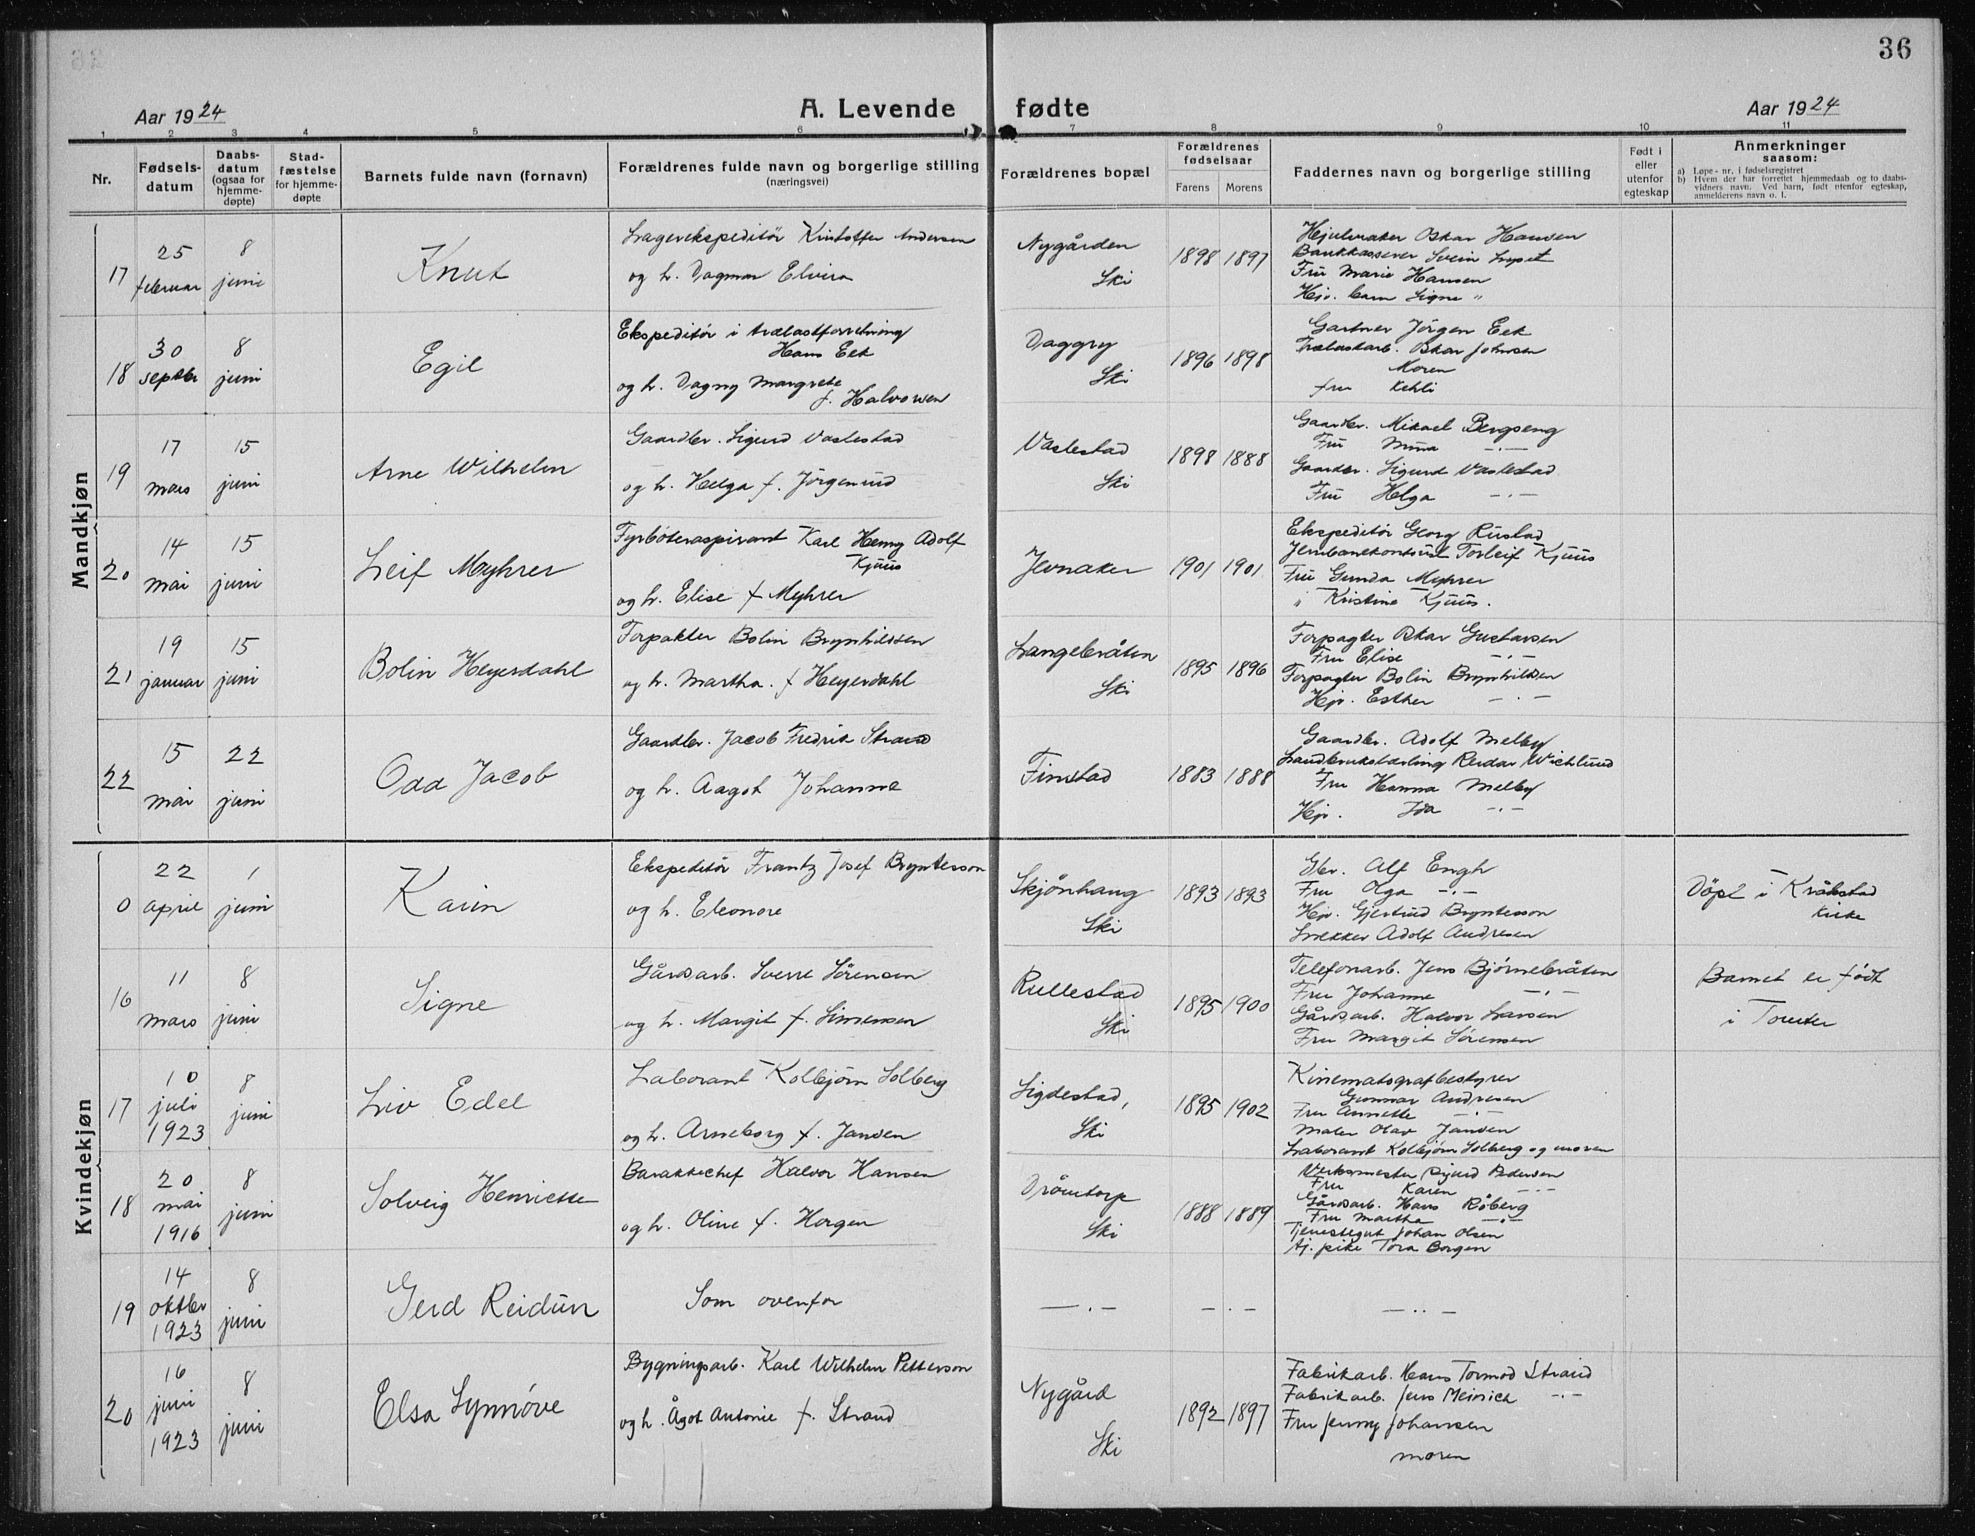 36
Aar 1924
A. Levende fødte
Aar 1924
1 2 3 4 5 6 7 8 9 10 11
Nr.
Fødsels-
datum
Daabs-
datum
(ogsaa for
hjemme-
døpte)
Stad-
fæstelse
for hjemme-
døpte
Barnets fulde navn (fornavn)
Forældrenes fulde navn og borgerlige stilling
(næringsvei)
Forældrenes bopæl
Forældrenes
fødselsaar
Farens Morens
Faddernes navn og borgerlige stilling
Født i
eller
utenfor
egteskap
Anmerkninger
saasom:
a) Løpe-nr. i fødselsregistret
b) Hvem der har forrettet hjemmedaab og to daabs-
vidners navn. Ved barn, født utenfor egteskap,
anmelderens navn o. l.
Mandkjøn
17
25
februar
8
juni
Knut
Lagerekspeditör Kristoffer Andersen
og h. Dagmar Elvira
Nygården
Ski
1898 1897
Hjulmaker Oskar Hansen
Bankkasserer Svein
Fru Marie Hansen
Hjv. barn Signe "
18
30
septbr
8
juni
Egil
Ekspeditör i trælastforretning
Hans Eek
og h. Dagny Margrete
f. Halvorsen
Daggry
Ski
1896 1898
Gartner Jörgen Eek
Trælastarb. Oskar Johnsen
Moren
fru Kehli
19
17
mars
15
juni
Arne Wilhelm
Gaardbr. Sigurd Vaslestad
og h. Helga f. Jörgenrud
Vaslestad
Ski
1898 1888
Gaardbr. Mikael Bergseng
Fru Mina -.-
Gaardbr. Sigurd Vaslestad
Fru Helga -.-
20
14
mai
15
juni
Leif Myhrer
Fyrböteraspirant Karl Henry Adolf
Kjuus
og h. Elise f Myhrer
Jevnaker
1901 1901
Ekspeditör Georg Rustad
Jernbanekontorist Torleif Kjuus
Fru Gunda Myhrer
" Kristine Kjuus.
21
19
januar
15
juni
Bolin Heyerdahl
Forpakter Bolin Brynhildsen
og h. Martha. f Heyerdahl
Langebråten
Ski
1895 1896
Forpagter Oskar Gustavsen
Fru Elise -.-
Forpagter Bolin Brynhildsen
Hjv. Esther -.-
22
15
mai
22
juni
Odd Jacob
Gaardbr. Jacob Fredrik Strand
og h. Aagot Johanne
Finstad
1883 1888
Gaardbr. Adolf Melby
Landbrukslærling Reidar Wichlund
Fru Hanna Melby
Hjv. Ida -.-
Kvindekjøn
0
22
april
1
juni
Karin
Ekspeditör Frantz Josef Bryntesson
og h. Eleonore
Skjönhaug
Ski
1893 1893
Gbr. Alf Engh
Fru Olga -.-
Hjv. Gjertrud Bryntesson
Snekker Adolf Andresen
Döpt i Kråkstad
kirke
16
11
mars
8
juni
Signe
Gårdsarb. Sverre Sörensen
og h. Margit f. Simensen
Rullestad
Ski
1895 1900
Telefonarb. Jens Björnebråten
Fru Johanne -.-
Gårdsarb. Halvor Larsen
Fru Margit Sörensen
Barnet er födt
i Tomter
17
10
juli
1923
8
juni
Liv Edel
Laborant Kolbjörn Solberg
og h. Arneborg f. Jansen
Sigdestad,
Ski
1895 1902
Kinematografbestyrer
Gunnar Andresen
Fru Annette -.-
Maler Olav Jansen
Laborant Kolbjörn Solberg og moren
18
20
mai
1916
8
juni
Solveig Henriette
Barakkechef Halvor Hansen
og h. Oline f. Horgen
Drömtorp
Ski
1888 1889
Verksmester Sigurd Pedersen
Fru Karen -.-
Gårdsarb. Hans Röberg
Fru Martha -.-
Tjenestegut Johan Olsen
Tj. pike Tora Borgen
19
14
oktbr
1923
8
juni
Gerd Reidun
Som ovenfor
-.-
-.-
-..-
20
16
juni
1923
8
juni
Elsa Synnöve
Bygningsarb. Karl Wilhelm Petterson
og h. Ågot Antonie f. Strand
Nygård
Ski
1892 1897
Fabrikarb. Hans Tormod Strand
Fabrikarb. Jens Meinich -.-
Fru Jenny Johansen
moren